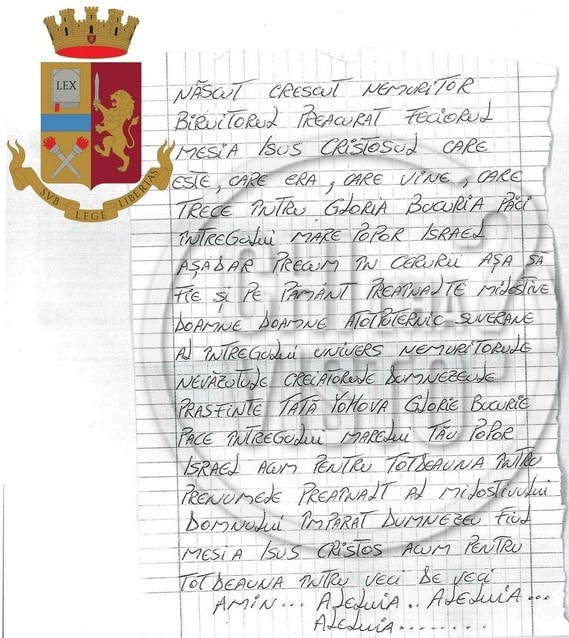 LEX
SVB LEGE LIBERTAS
NĂSCUT CRESCUT NEMURITOR
BIRUITORUL PREACURAT FECIORUL
MESIA ISUS CRISTOSUL CARE
ESTE, CARE ERA, CARE VINE, CARE
TRECE ÎNTRU GLORIA BUCURIA PĂCI
ÎNTREGULUI MARE POPOR ISRAEL
AȘADAR PRECUM ÎN CERURU AȘA SĂ
FIE ȘI PE PĂMÂNT PREAÎNALTE MILOSTIVE
DOAMNE DOAMNE ATOTPUTERNIC SUVERANE
AL ÎNTREGULUI UNIVERS NEMURITORULE
NEVĂZUTULE CREIATORULE DUMNEZEULE
PRASFINTE TATĂ YOHOVA GLORIE BUCURIE
PACE ÎNTREGULUI MARELUI TĂU POPOR
ISRAEL ACUM PENTRU TOTDEAUNA ÎNTRU
PRENUMELE PREAÎNALT AL MILOSTIVULUI
DOMNULUI ÎMPARAT DUMNEZEU FIUL
MESIA ISUS CRISTOS ACUM PENTRU
TOTDEAUNA ÎNTRU VECI DE VECI
AMIN... ALELUIA.. ALELUIA...
ALELUIA........